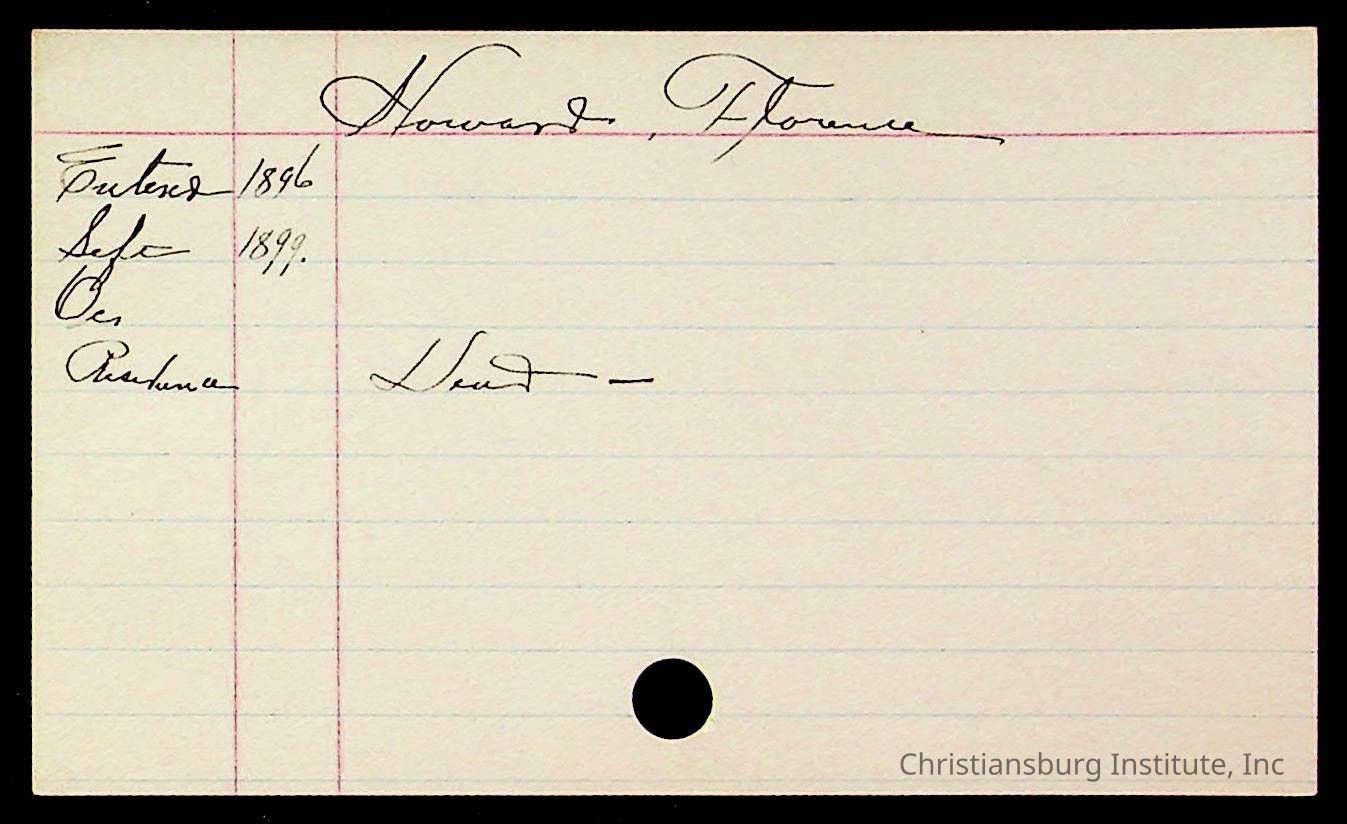 Howard, Florence
Entered 1896
Left 1899.
Oc.
Residence Dead —
Christiansburg Institute, Inc